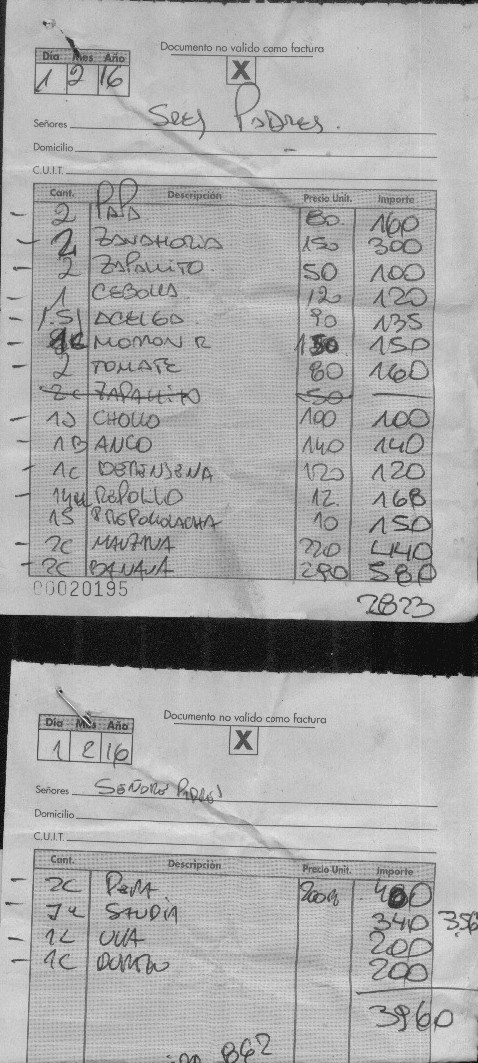 Documento no valido como factura
Día Mes Año
X
1 2 16
Señores Sres Padres.
Domicilio
C.U.I.T.
Cant. Descripción Precio Unit. Importe
2 PAPA 80. 160
2 ZANAHORIA 150 300
2 ZAPALLITO. 50 100
1 CEBOLLA 120 120
1.5 ACELGA 90 135
MORRON R 150 150
2 TOMATE 80 160
2c ZAPALLITO 50
1J CHOLLO 100 100
1B ANCO 140 140
1c BERENJENA 120 120
14u REPOLLO 12. 168
15 REMOLACHA 10 150
2c MANZANA 220 440
2c BANANA 290 580
00020195
2823
Documento no valido como factura
Día Mes Año
X
1 2 16
Señores SEÑORES PADRES
Domicilio
C.U.I.T.
Cant. Descripción Precio Unit. Importe
2c PERA 200 400
SANDIA 340
1c UVA 200
1c DURAZNO 200
3960
862